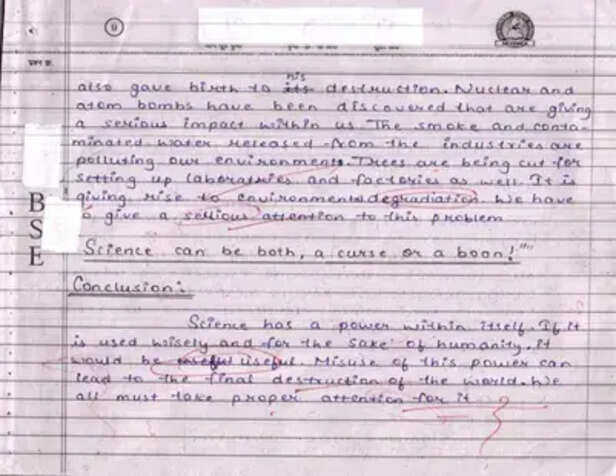 also gave birth to his destruction. Nuclear and
atom bombs have been discovered that are giving
a serious impact within us. The smoke and conta-
minated water released from the industries are
polluting our environments. Trees are being cut for
setting up laboratries and factories as well. It is
giving rise to environments degradation. We have
to give a serious attention to this problem
B
S
E
Science can be both, a curse or a boon!""
Conclusion:
Science has a power within itself. If it
is used wisely and for the sake of humanity, it
would be useful. Misuse of this power can
lead to the final destruction of the world. We
all must take proper attention for it